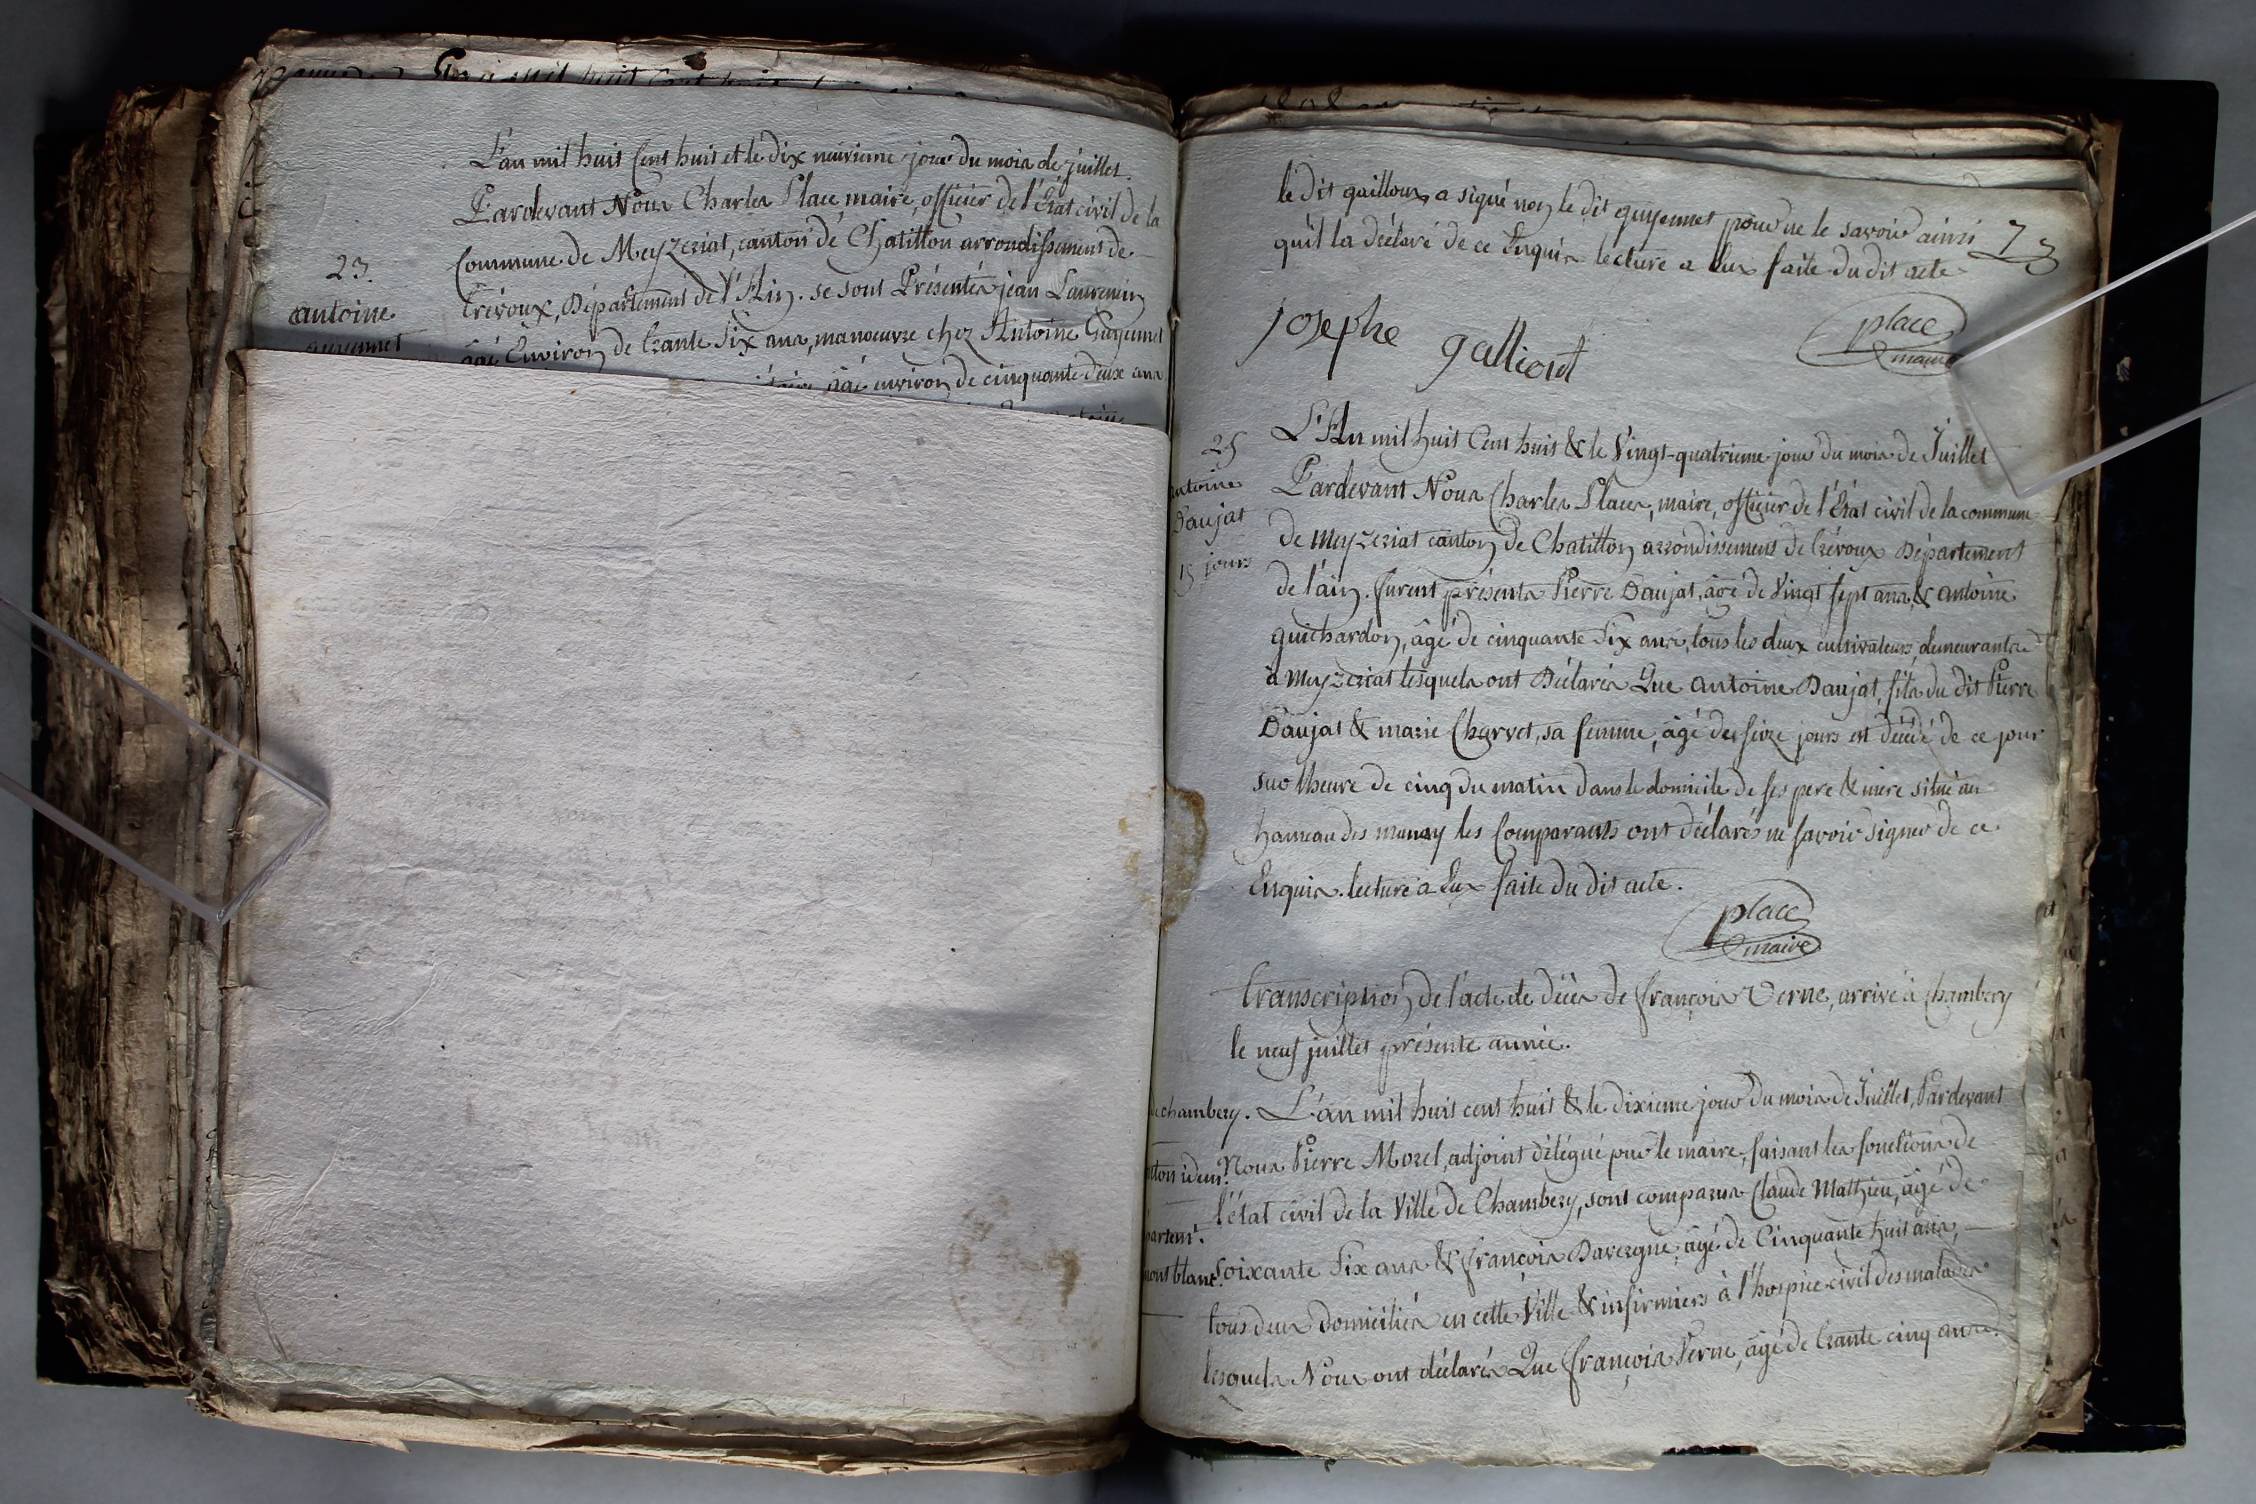 L'an mil huit Cent huit et le dix neuvieme jour du mois de juillet.
Pardevant Nous Charles Place maire, officier de l'État civil de la
Commune de Meyzeriat, canton de Chatillon arrondissement de
trévoux, Département de l'Ain. se sont Présentés jean Laurencin
âgé Environ de trante six ans, manoeuvre chez Antoine Guyennet
âgé environ de cinquante deux ans
23
antoine
guyennet
le dit gailloux a signé non le dit guyennet pour ne le savoir ainsi
qu'il la déclaré de ce Enquis lecture a Eux faite du dit acte
73
josephe galliout
place
maire
25
antoine
Daujat
15 jours
L'An mil huit Cent huit & le Vingt-quatrieme jour du mois de Juillet
Pardevant Nous Charles Place, maire, officier de l'État civil de la commune
de Meyzeriat canton de Chatillon arrondissement de trévoux Département
de l'ain. furent présents Pierre Daujat, âgé de Vingt sept ans, & antoine
guichardon, âgé de cinquante six ans, tous les deux cultivateurs, demeurants
à Meyzeriat lesquels ont Déclarés Que antoine Daujat, fils du dit Pierre
Daujat & marie Charvet, sa femme, âgé de seize jours est décédé de ce jour
sur l'heure de cinq du matin dans le domicile de ses pere & mere situé au
hameau des munay les Comparants ont déclarés ne savoir signer de ce
Enquis. lecture a Eux faite du dit acte.
place
maire
transcription de l'acte de décès de françois Verne, arrivé à Chambery
le neuf juillet présente année.
de chambery.
canton idem.
partemt.
mont blanc.
L'an mil huit cent huit & le dixieme jour du mois de Juillet, Pardevant
Nous Pierre Morel, adjoint délégué par le maire, faisant les fonctions de
l'état civil de la Ville de Chambery, sont comparus Claude Mathieu, âgé de
soixante six ans & françois Davergne, âgé de Cinquante huit ans,
tous deux domiciliés en cette Ville & infirmiers à l'hospice civil des malades
lesquels Nous ont déclarés Que françois Verne, âgé de trante cinq ans